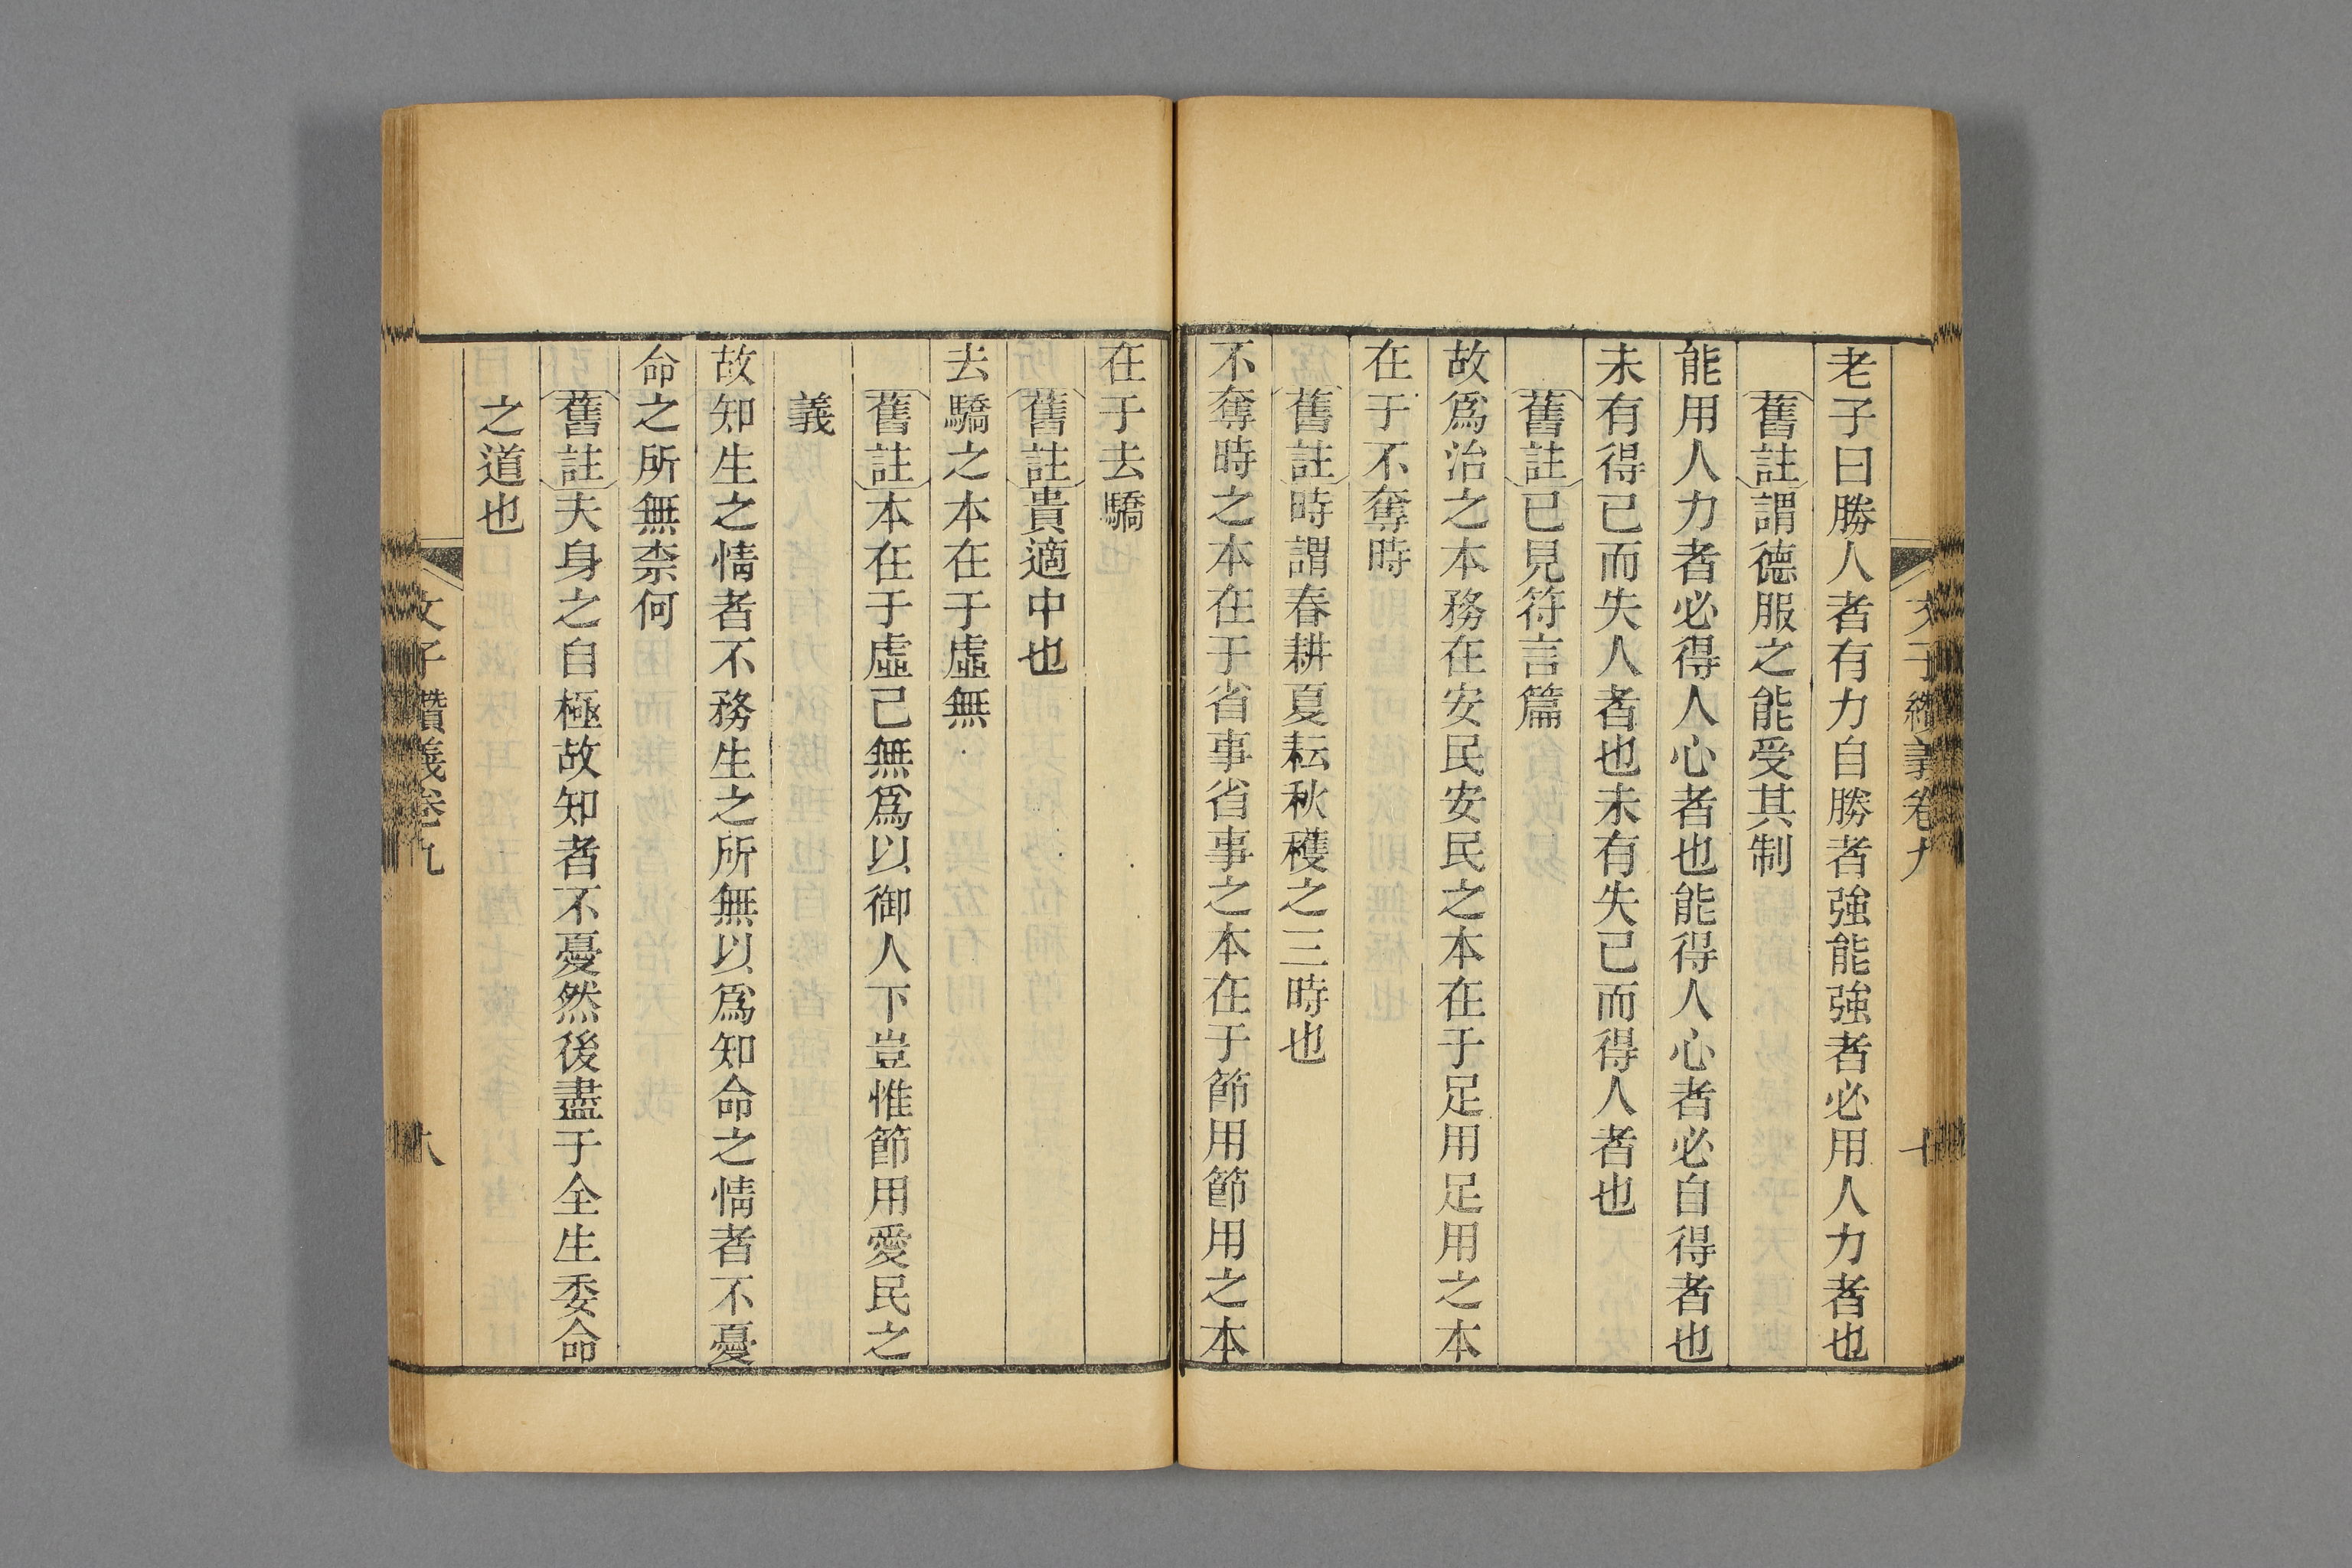 老子曰勝人者有力自勝者強能強者必用人力者也
舊註謂德服之能受其制
能用人力者必得人心者也能得人心者必自得者也
未有得已而失人者也未有失已而得人者也
舊註已見符言篇
故爲治之本務在安民安民之本在于足用足用之本
在于不奪時
舊註時謂春耕夏耘秋穫之三時也
不奪時之本在于省事省事之本在于節用節用之本
在于去驕
舊註貴適中也
去驕之本在于虛無
舊註本在于虛已無爲以御人下豈惟節用愛民之
義
故知生之情者不務生之所無以爲知命之情者不憂
命之所無柰何
舊註夫身之自極故知者不憂然後盡于全生委命
之道也
文子纘義卷九